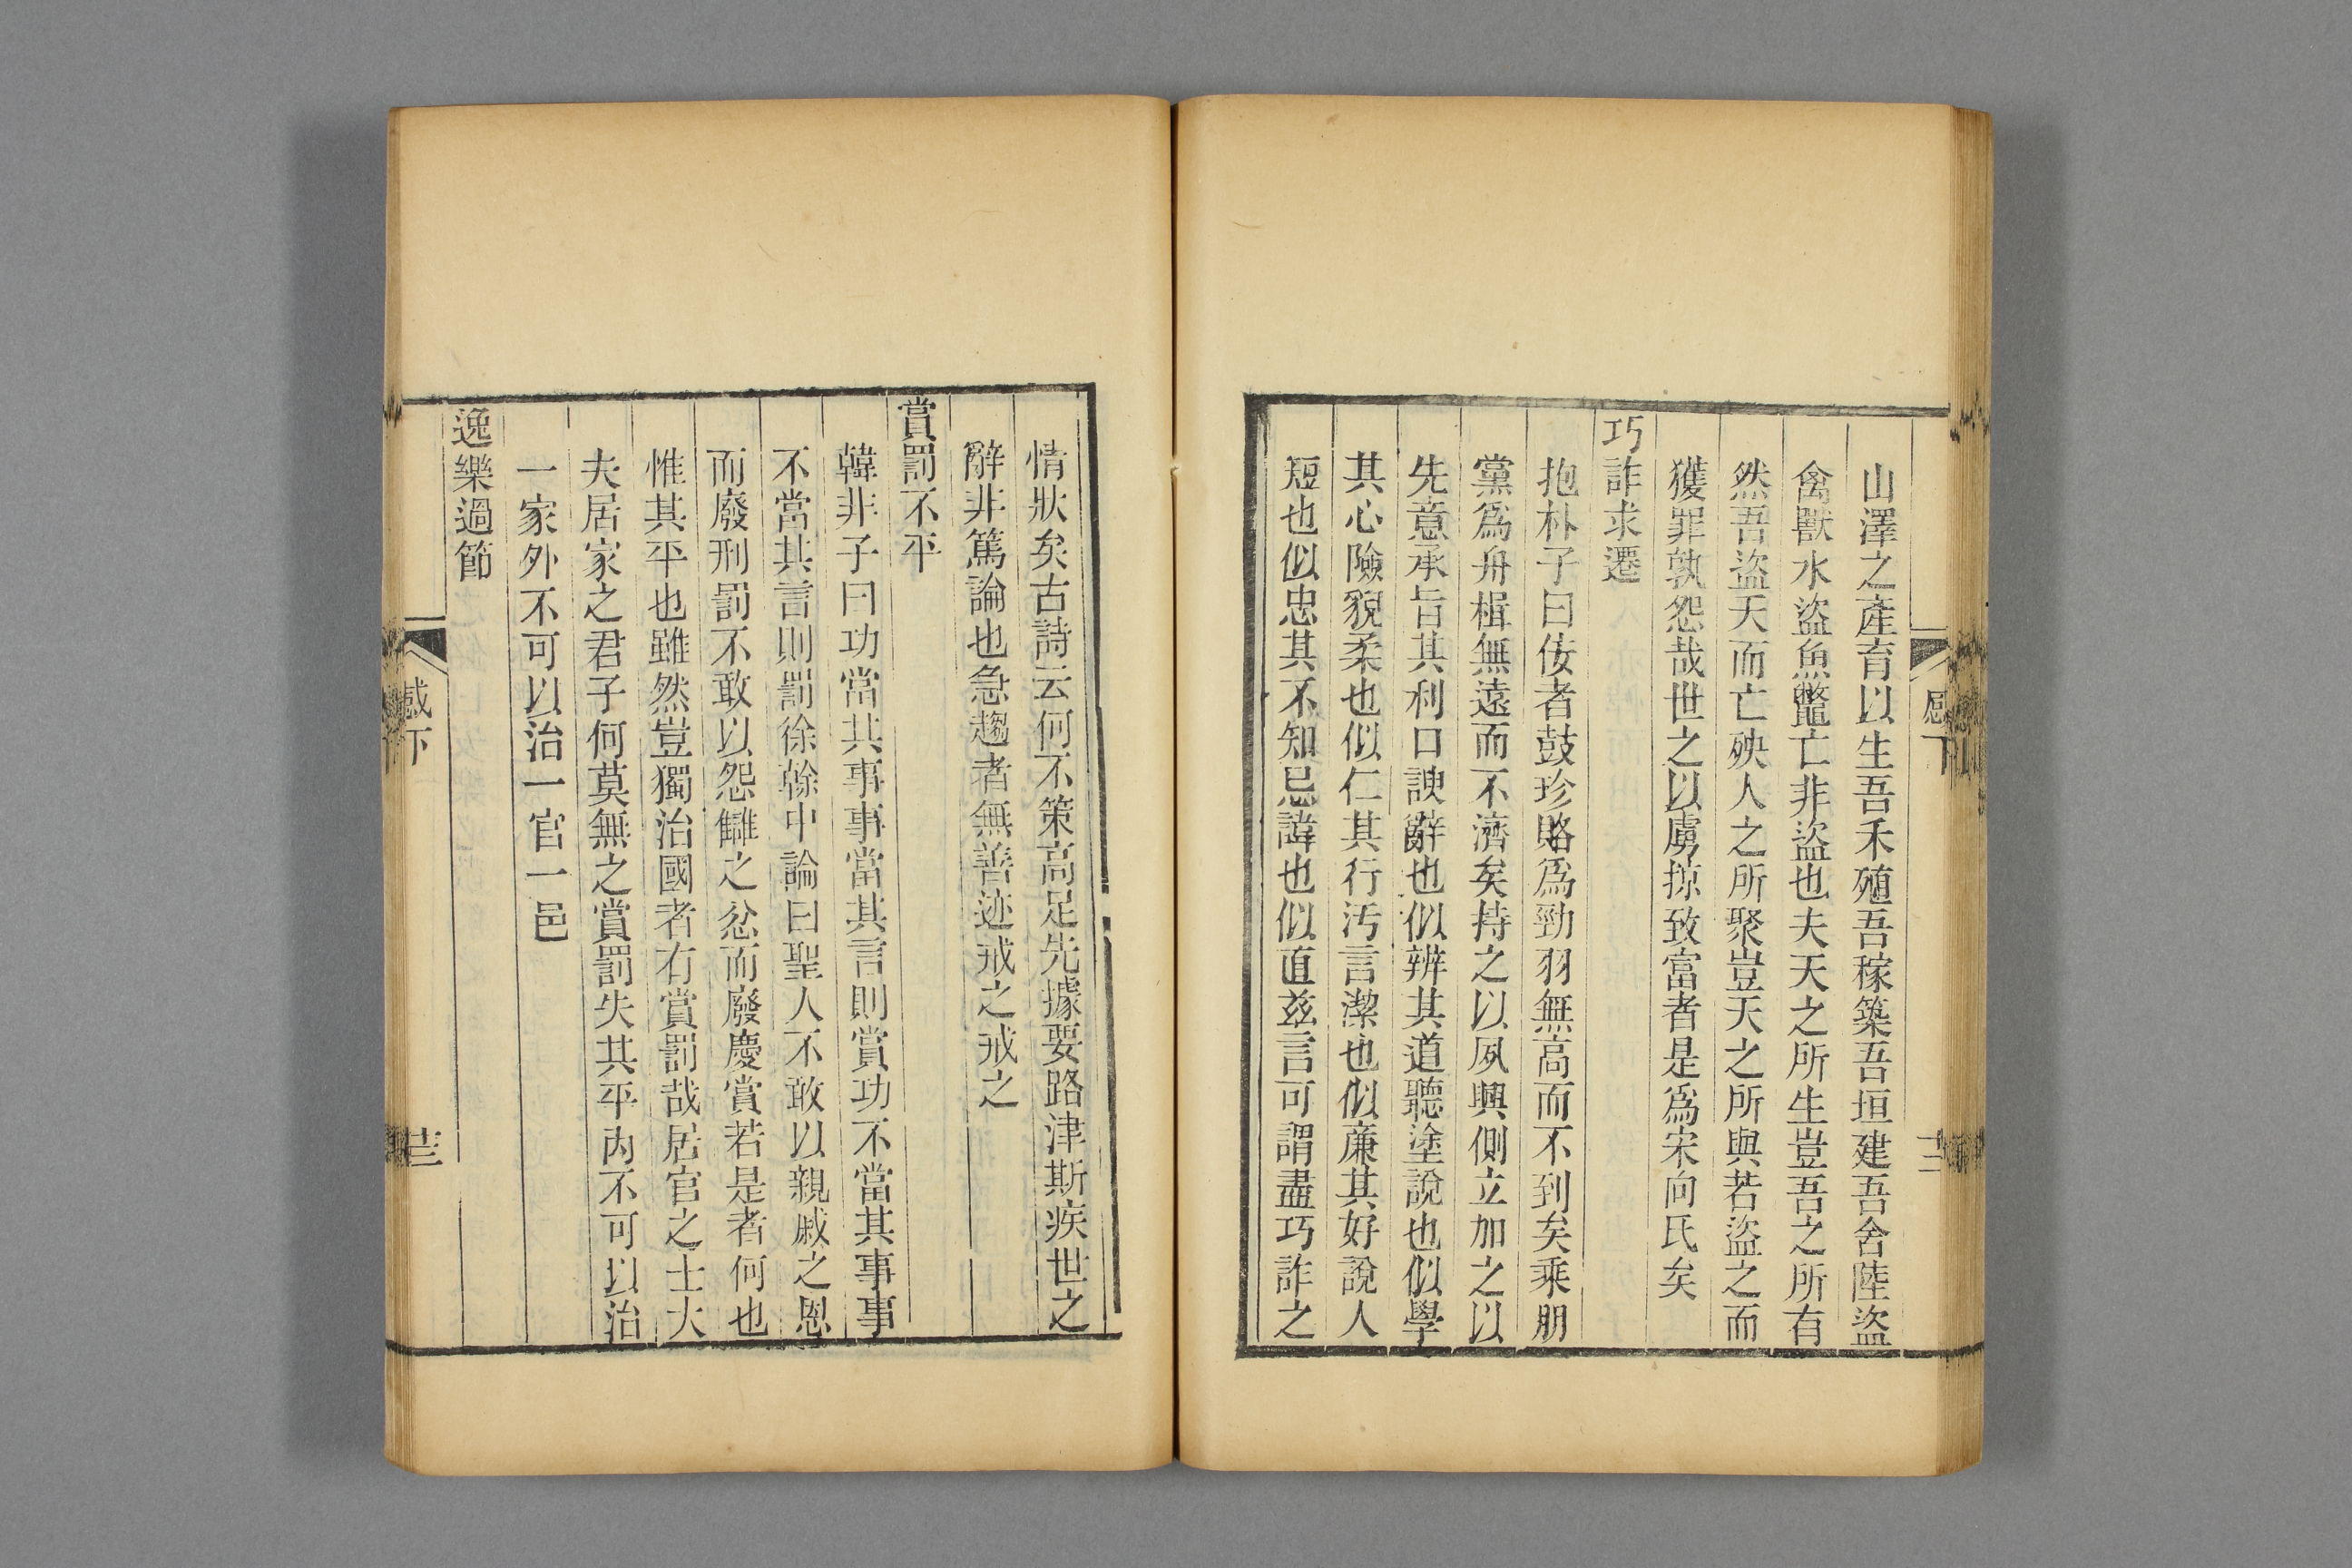 山澤之產育以生吾禾殖吾稼築吾垣建吾舍陸盜
禽獸水盜魚鼈亡非盜也夫天之所生豈吾之所有
然吾盜天而亡殃人之所聚豈天之所與若盜之而
獲罪孰怨哉世之以虜掠致富者是爲宋向氏矣
巧詐求遷
抱朴子曰佞者鼓珍賂爲勁羽無高而不到矣乘朋
黨爲舟楫無遠而不濟矣持之以夙興側立加之以
先意承旨其利口諛辭也似辨其道聽塗說也似學
其心險貌柔也似仁其行汚言潔也似廉其好說人
短也似忠其不知忌諱也似直茲言可謂盡巧詐之
情狀矣古詩云何不策高足先據要路津斯疾世之
辭非篤論也急趨者無善迹戒之戒之
賞罰不平
韓非子曰功當其事事當其言則賞功不當其事事
不當其言則罰徐榦中論曰聖人不敢以親戚之恩
而廢刑罰不敢以怨讎之忿而廢慶賞若是者何也
惟其平也雖然豈獨治國者有賞罰哉居官之士大
夫居家之君子何莫無之賞罰失其平內不可以治
一家外不可以治一官一邑
逸樂過節
感下